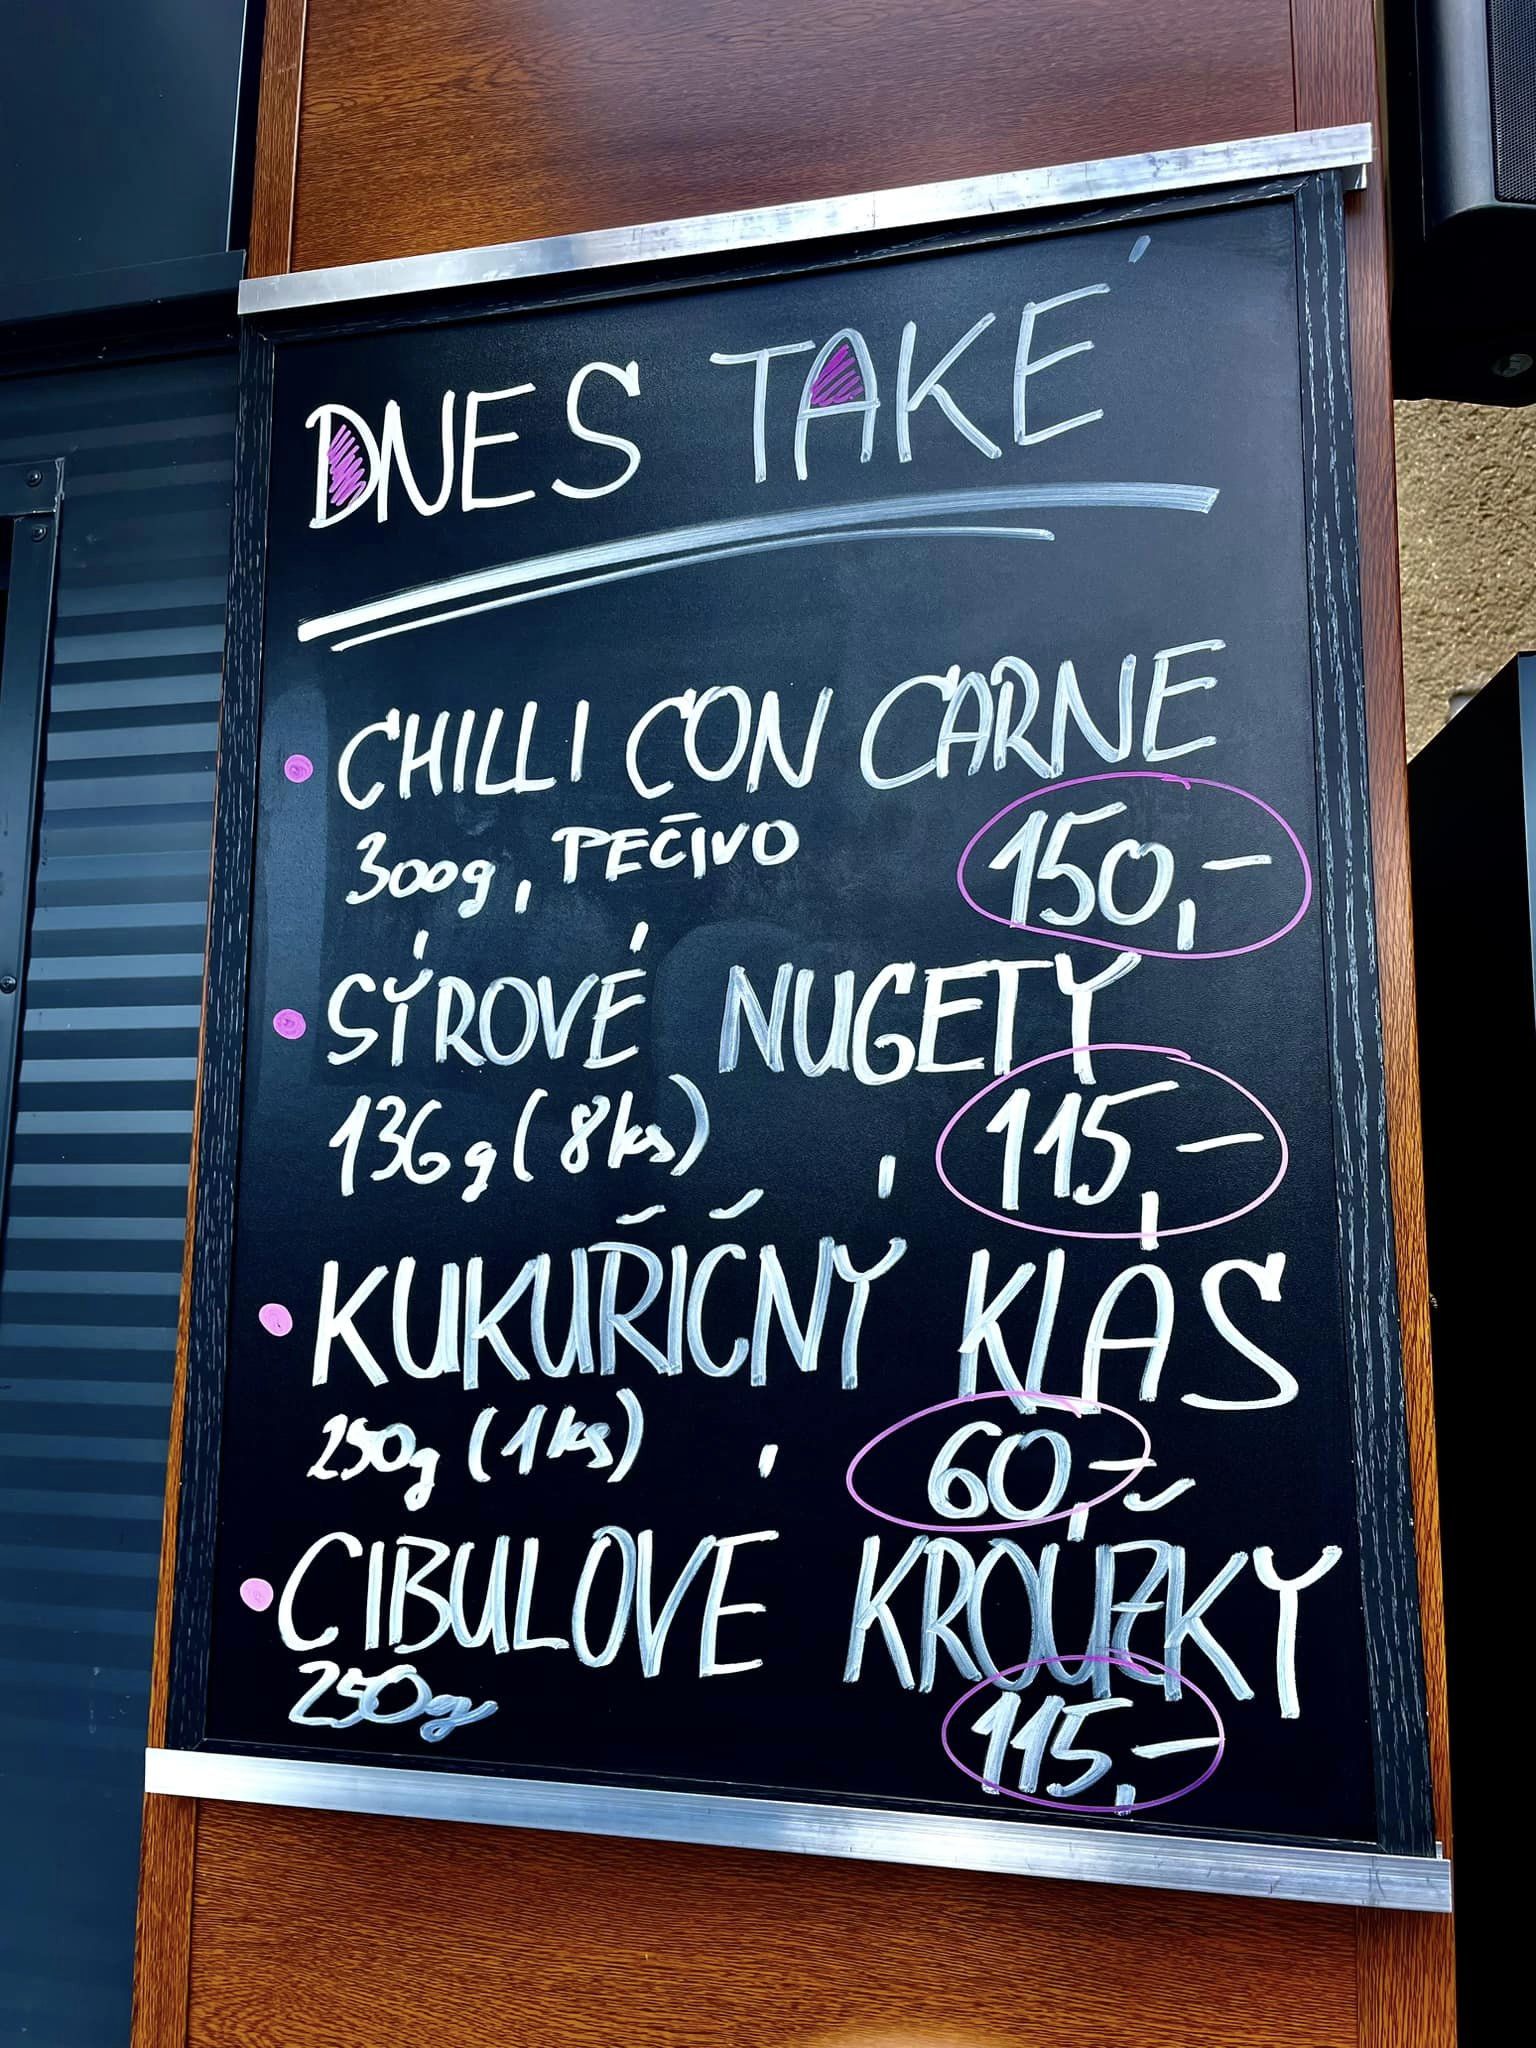 DNES TAKÉ
CHILLI CON CARNE
300g, PEČIVO 150,-
SÝROVÉ NUGETY
136g (8ks) 115,-
KUKUŘIČNÝ KLAS
250g (1ks) 60,-
CIBULOVÉ KROUŽKY
250g 115,-